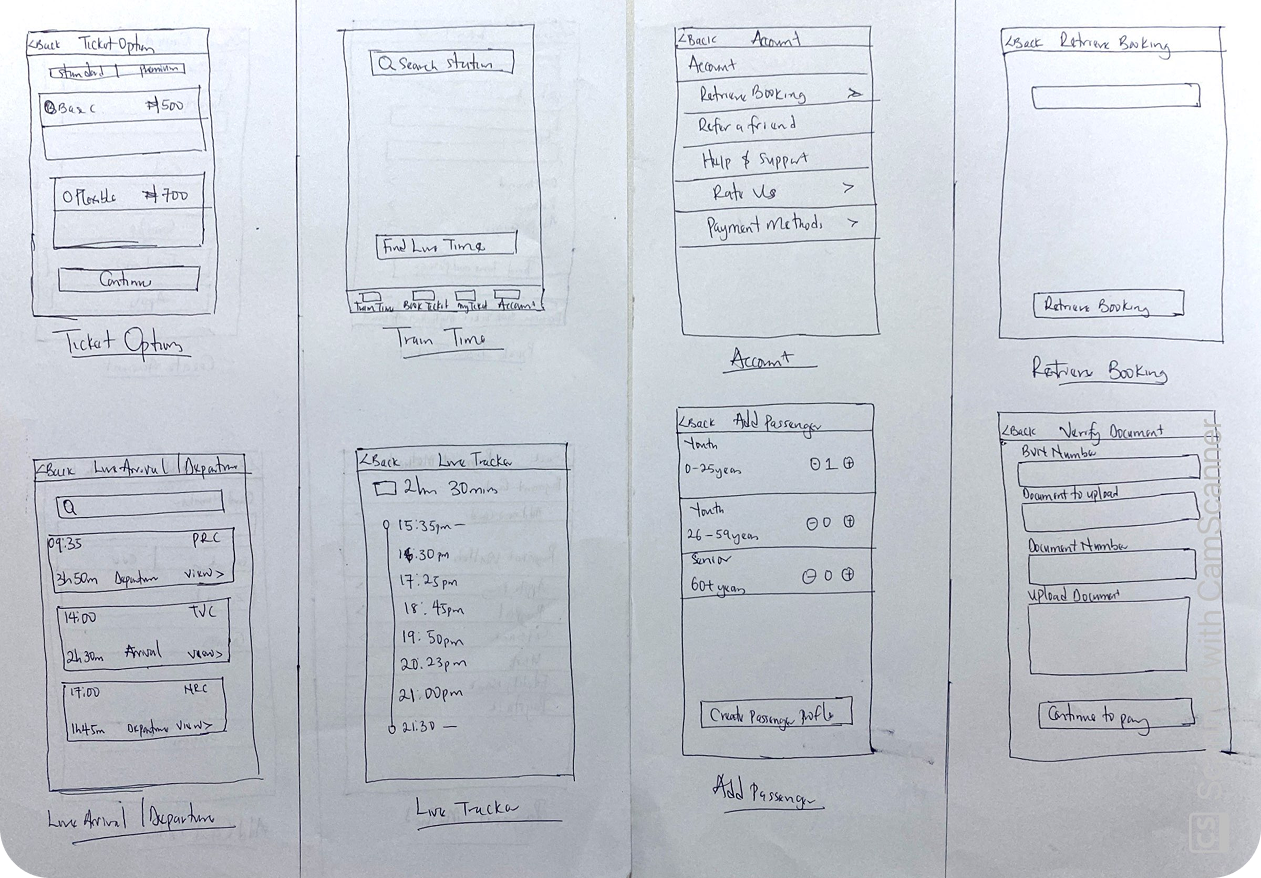 <Back Ticket Option
Standard | Premium
Basic ₦500
Flexible ₦700
Continue
Ticket Options
Search station
Find Live Time
Train Time Book Ticket My Ticket Account
Train Time
<Back Account
Account
Retrieve Booking >
Refer a friend
Help & Support
Rate Us >
Payment Methods >
Account
<Back Retrieve Booking
Retrieve Booking
Retrieve Booking
<Back Live Arrival | Departure
09:35 PRC
3h 50m Departure View>
14:00 TVC
2h 30m Arrival View>
17:00 NRC
1h45m Departure View>
Live Arrival | Departure
<Back Live Tracker
2hr 30mins
15:35pm —
16.30pm
17:25pm
18:45pm
19:50pm
20.23pm
21:00pm
21:30 —
Live Tracker
<Back Add Passenger
Youth
0-25years
1
Youth
26-59years
0
Senior
60+years
0
Create Passenger Profile
Add Passenger
<Back Verify Document
BVN Number
Document to upload
Document Number
Upload Document
Continue to pay
with CamScanner
CS